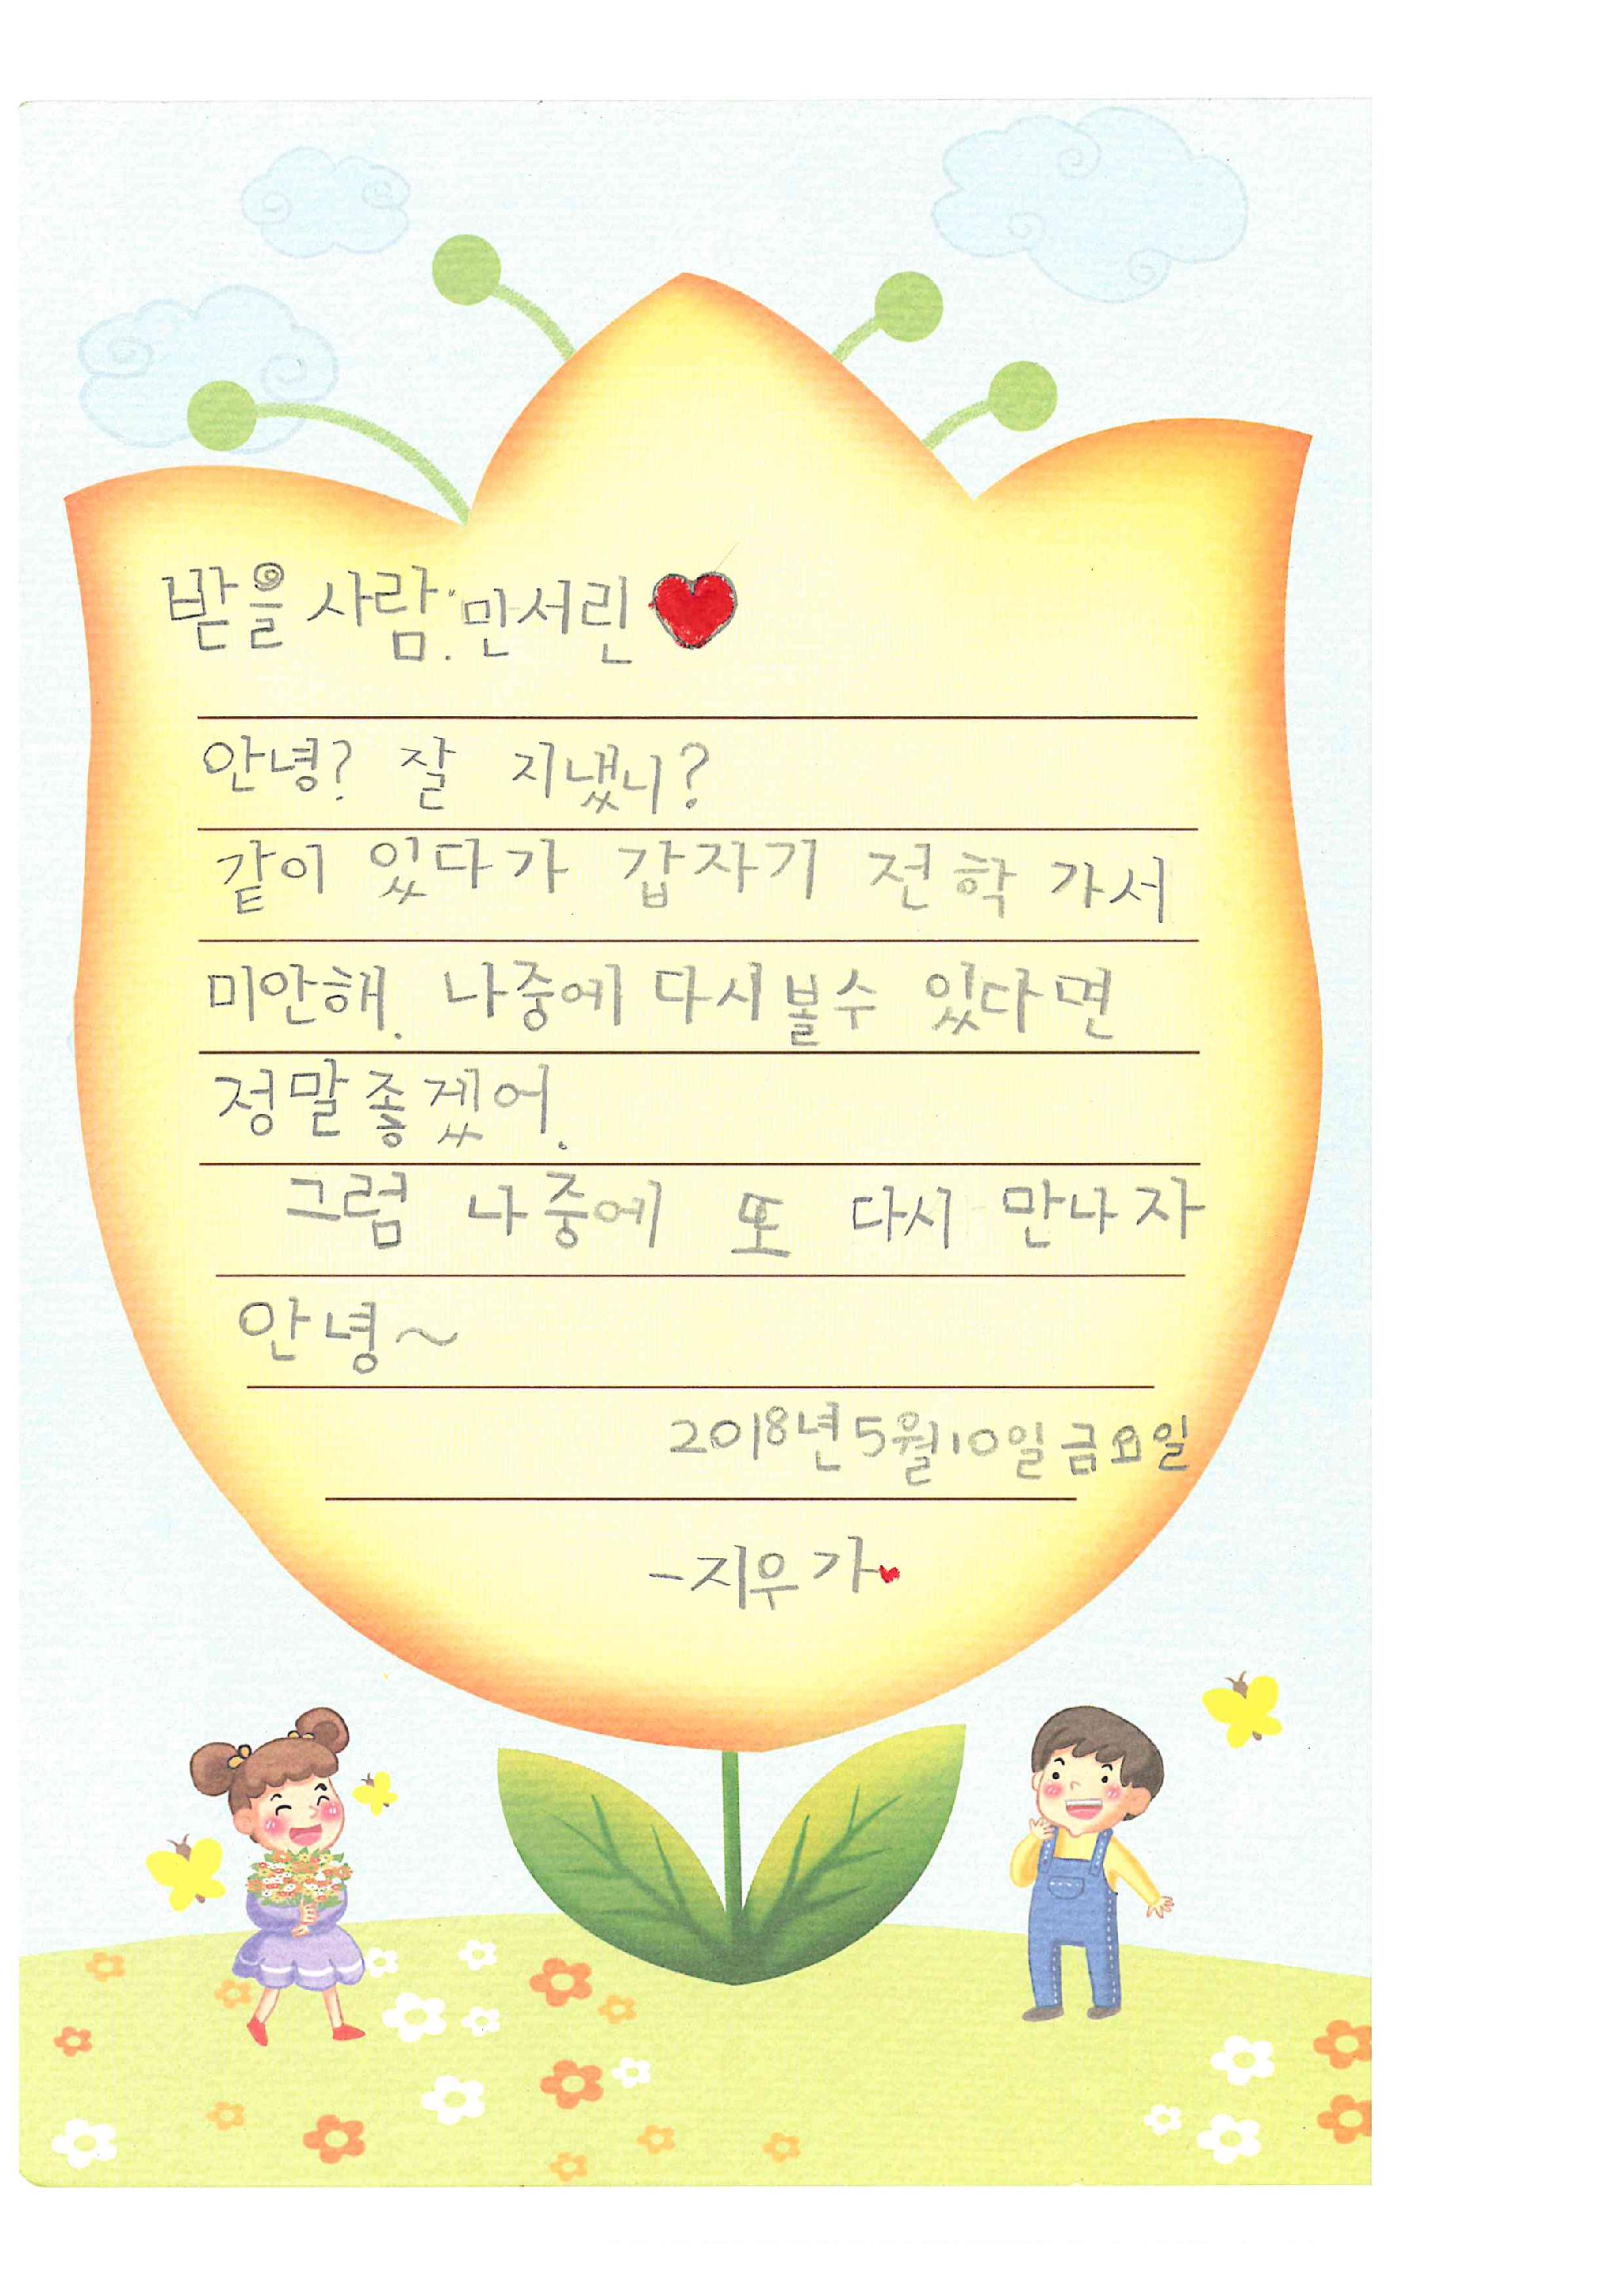 받을 사람: 민서린
안녕? 잘 지냈니?
같이 있다가 갑자기 전학 가서
미안해. 나중에 다시 볼수 있다면
정말 좋겠어.
그럼 나중에 또 다시 만나자
안녕~
2018년 5월 10일 금요일
-지우가